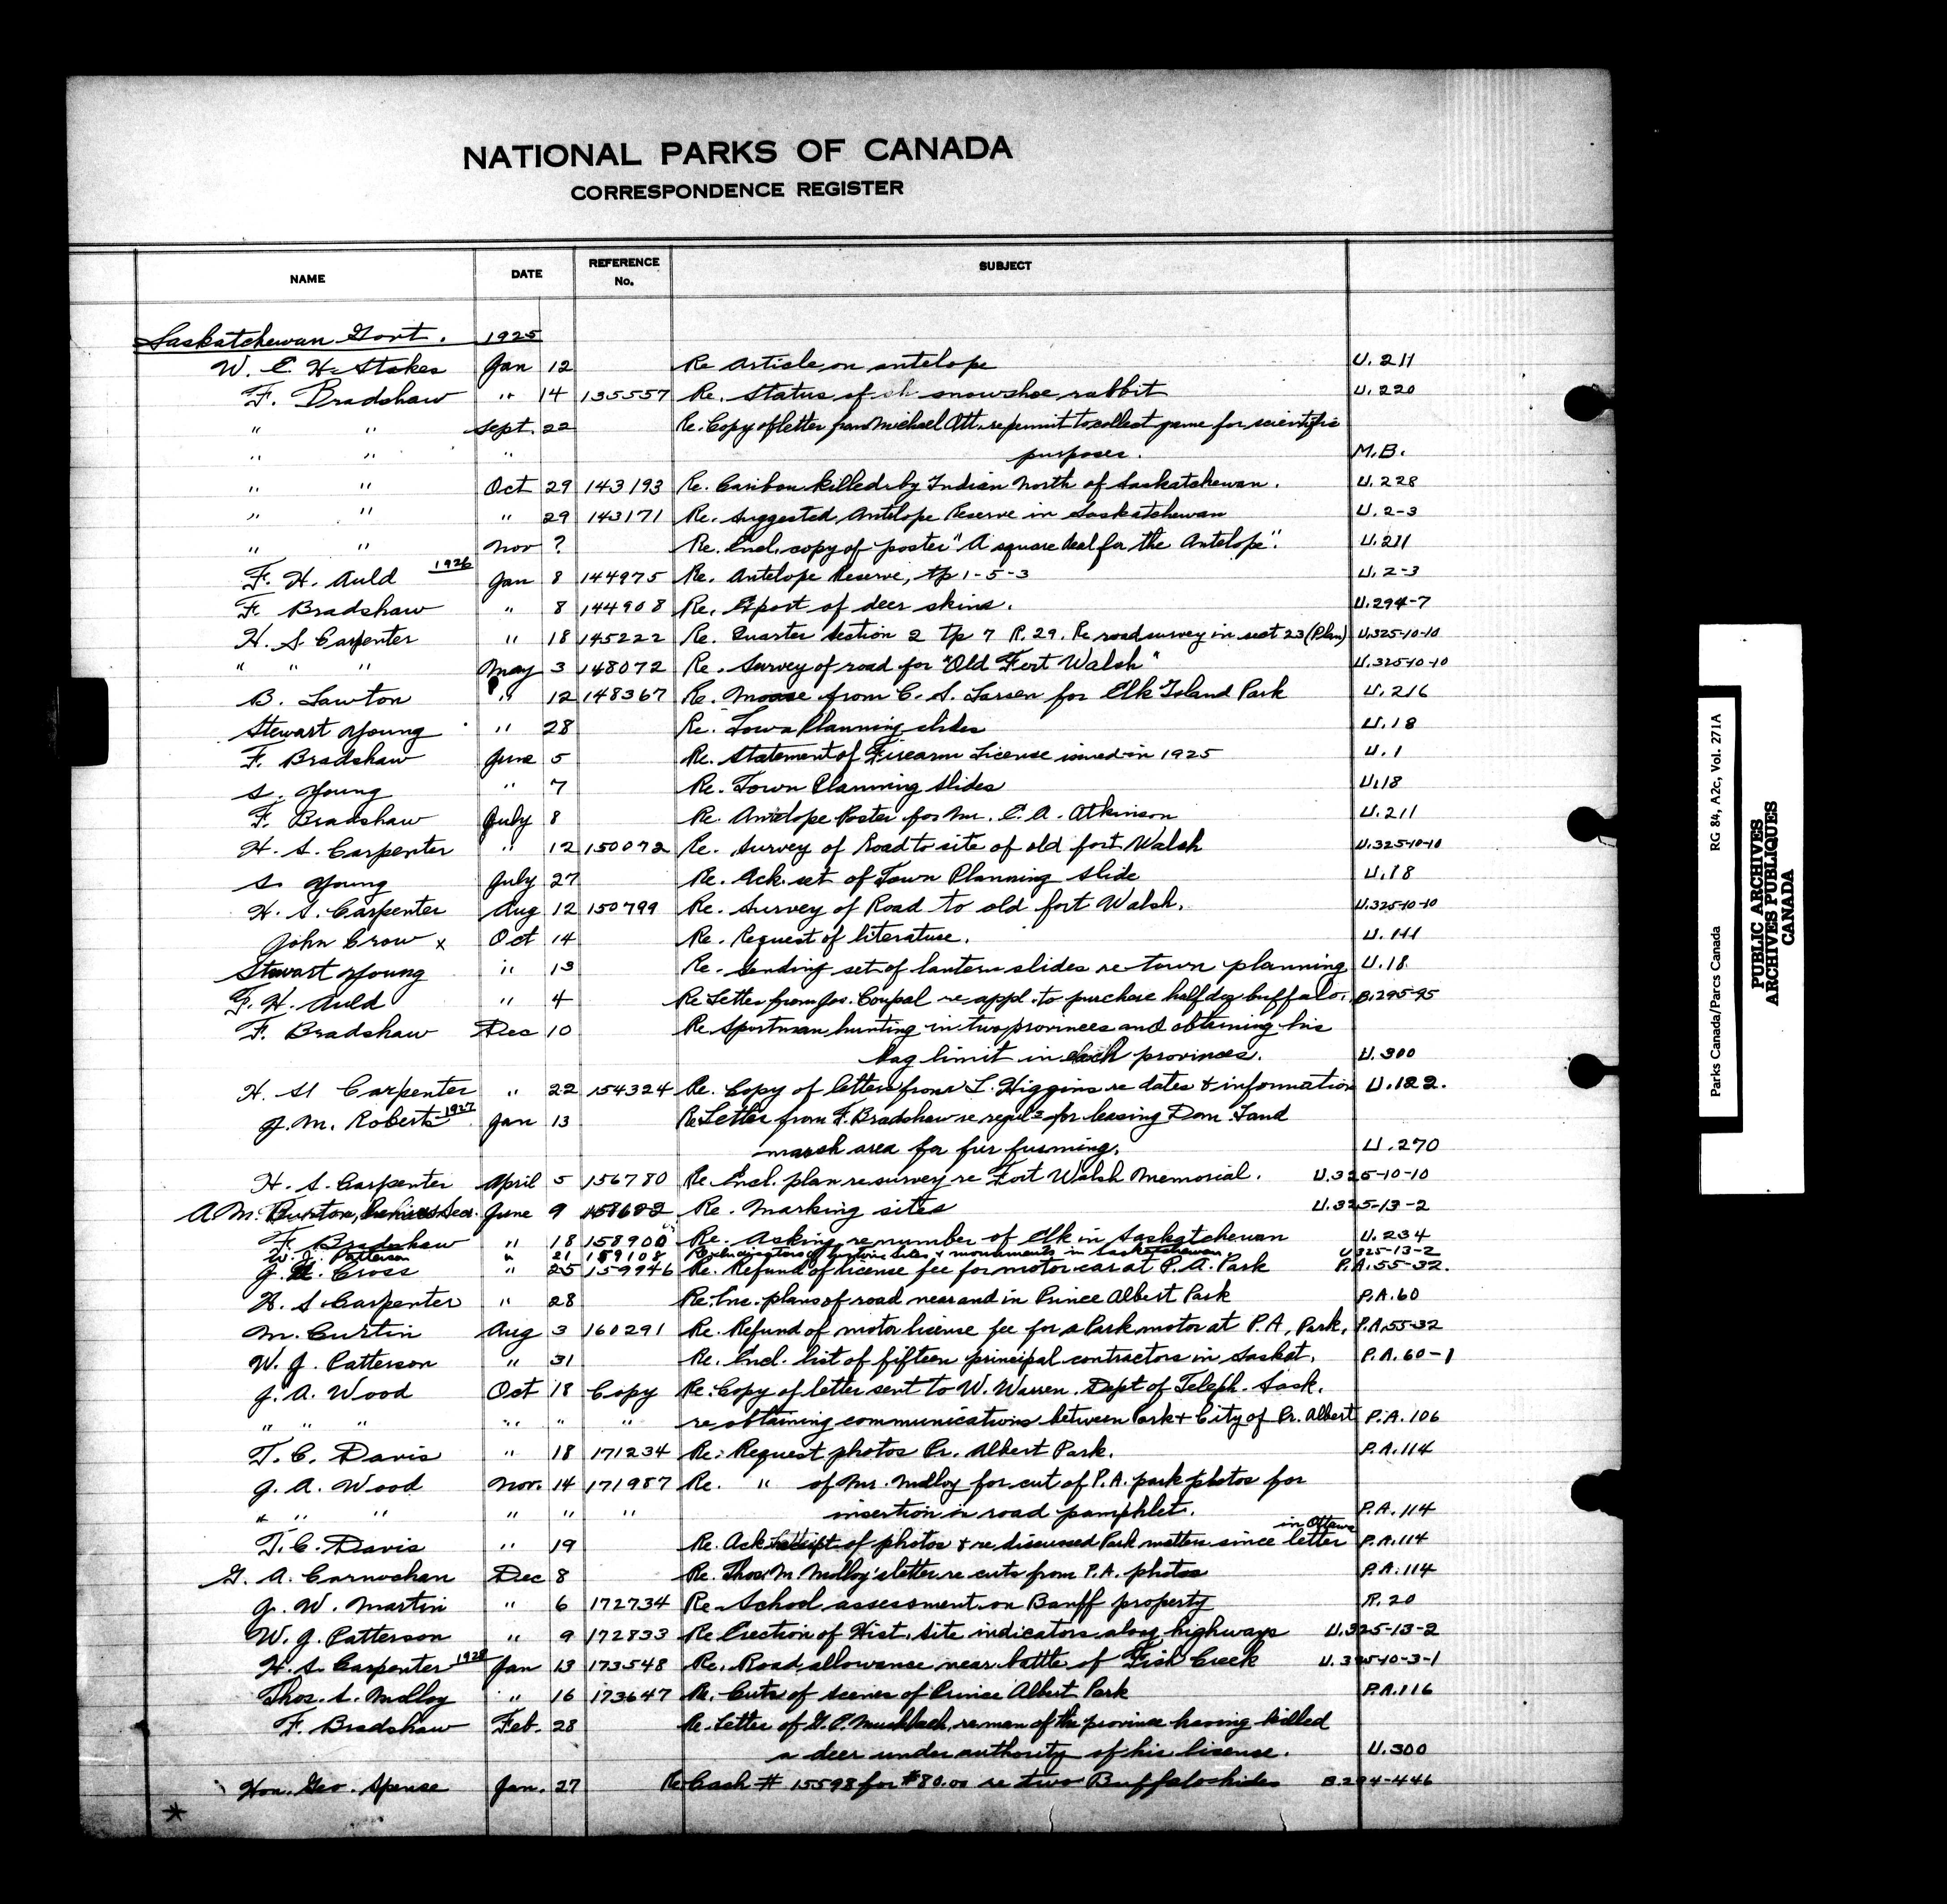 NATIONAL PARKS OF CANADA
CORRESPONDENCE REGISTER
NAME DATE REFERENCE No. SUBJECT
Saskatchewan Govt. 1925
W. E. H. Stokes Jan 12 Re Article on antelope U. 211
F. Bradshaw " 14 135557 Re. Status of snowshoe rabbit U. 220
" " Sept. 22 Re. Copy of letter from Michael Ott. re permit to collect game for scientific
" " " purposes. M.B.
" " Oct 29 143193 Re. Caribou killed by Indian North of Saskatchewan. U. 228
" " " 29 143171 Re. Suggested Antelope Reserve in Saskatchewan U. 2-3
" " Nov ? Re. Encl. copy of poster "A square deal for the Antelope". U. 211
F. H. Auld 1926 Jan 8 144975 Re. Antelope Reserve, tp 1-5-3 U. 2-3
F. Bradshaw " 8 144908 Re. Export of deer skins. U. 294-7
H. S. Carpenter " 18 145222 Re. Quarter Section 2 Tp 7 R. 29. Re road survey in sect 23 (Plan) U.325-10-10
" " " May 3 148072 Re. Survey of road for "Old Fort Walsh" U.325-10-10
B. Lawton " 12 148367 Re. Moose from C. S. Larsen for Elk Island Park U. 216
Stewart Young " 28 Re. Town Planning slides U. 18
F. Bradshaw June 5 Re. Statement of Firearm License issued in 1925 U. 1
S. Young " 7 Re. Town Planning Slides U.18
F. Bradshaw July 8 Re. Antelope Poster for Mr. C. A. Atkinson U. 211
H. S. Carpenter " 12 150072 Re. Survey of Road to site of old fort Walsh U.325-10-10
S. Young July 27 Re. Ack. set of Town Planning Slide U.18
H. S. Carpenter Aug 12 150799 Re. Survey of Road to old fort Walsh. U.325-10-10
John Crow x Oct 14 Re. Request of literature. U. 111
Stewart Young " 13 Re. Sending set of lantern slides re town planning U.18
F. H. Auld " 4 Re Letter from Jos. Coupal re appl. to purchase half doz buffalo. B.295-95
F. Bradshaw Dec 10 Re Sportsman hunting in two provinces and obtaining his
bag limit in each provinces. U. 300
H. S. Carpenter " 22 154324 Re. Copy of letters from L. Higgins re dates & information U.122.
J. M. Roberts 1927 Jan 13 Re Letter from F. Bradshaw re for leasing Dom. Land
marsh area for fur farming. U.270
H. S. Carpenter April 5 156780 Re. Encl. plan re survey re Fort Walsh Memorial. U.325-10-10
A. M. Burton, June 9 158682 Re. Marking sites U.325-13-2
F. Bradshaw " 18 158900 Re. Asking re number of Elk in Saskatchewan U. 234
W. J. Patterson " 21 159108 Re. historic sites & monuments in Saskatchewan U.325-13-2
J. Cross " 25 159946 Re. Refund of license fee for motor car at P.A. Park P.A.55-32.
H. S. Carpenter " 28 Re. Enc. plans of road near and in Prince Albert Park P.A.60
M. Curtin Aug 3 160291 Re. Refund of motor license fee for a Park motor at P.A. Park. P.A.55-32
W. J. Patterson " 31 Re. Encl. list of fifteen principal contractors in Saskat. P.A. 60-1
J. A. Wood Oct 18 Copy Re: Copy of letter sent to W. Warren. Dept of Teleph. Sask.
" " " " " " re obtaining communications between Park & City of Pr. Albert P.A. 106
T. C. Davis " 18 171234 Re: Request photos Pr. Albert Park. P.A.114
J. A. Wood Nov. 14 171987 Re. " of Mr. Molloy for cut of P.A. park photos for
" " " " " " insertion in road pamphlet. P.A. 114
in Ottawa
T. C. Davis " 19 Re. Ack receipt of photos & re discussed Park matters since letter P.A.114
G. A. Carnochan Dec 8 Re. Thos. M. Molloy's letter re cuts from P.A. photos P.A. 114
J. W. Martin " 6 172734 Re School assessment on Banff property R. 20
W. J. Patterson " 9 172833 Re Erection of Hist. site indicators along highways U.325-13-2
H. S. Carpenter 1928 Jan 13 173548 Re. Road allowance near battle of Fish Creek U.325-10-3-1
Thos. S. Molloy " 16 173647 Re. Cuts of scenes of Prince Albert Park P.A.116
F. Bradshaw Feb. 28 Re. Letter of G. P. re man of the province having killed
a deer under authority of his license. U.300
Hon. Geo. Spence Jan. 27 Re Cash # 15598 for $80.00 re two Buffalo hides B.294-446
*
Parks Canada/Parcs Canada RG 84, A2c, Vol. 271A
PUBLIC ARCHIVES
ARCHIVES PUBLIQUES
CANADA